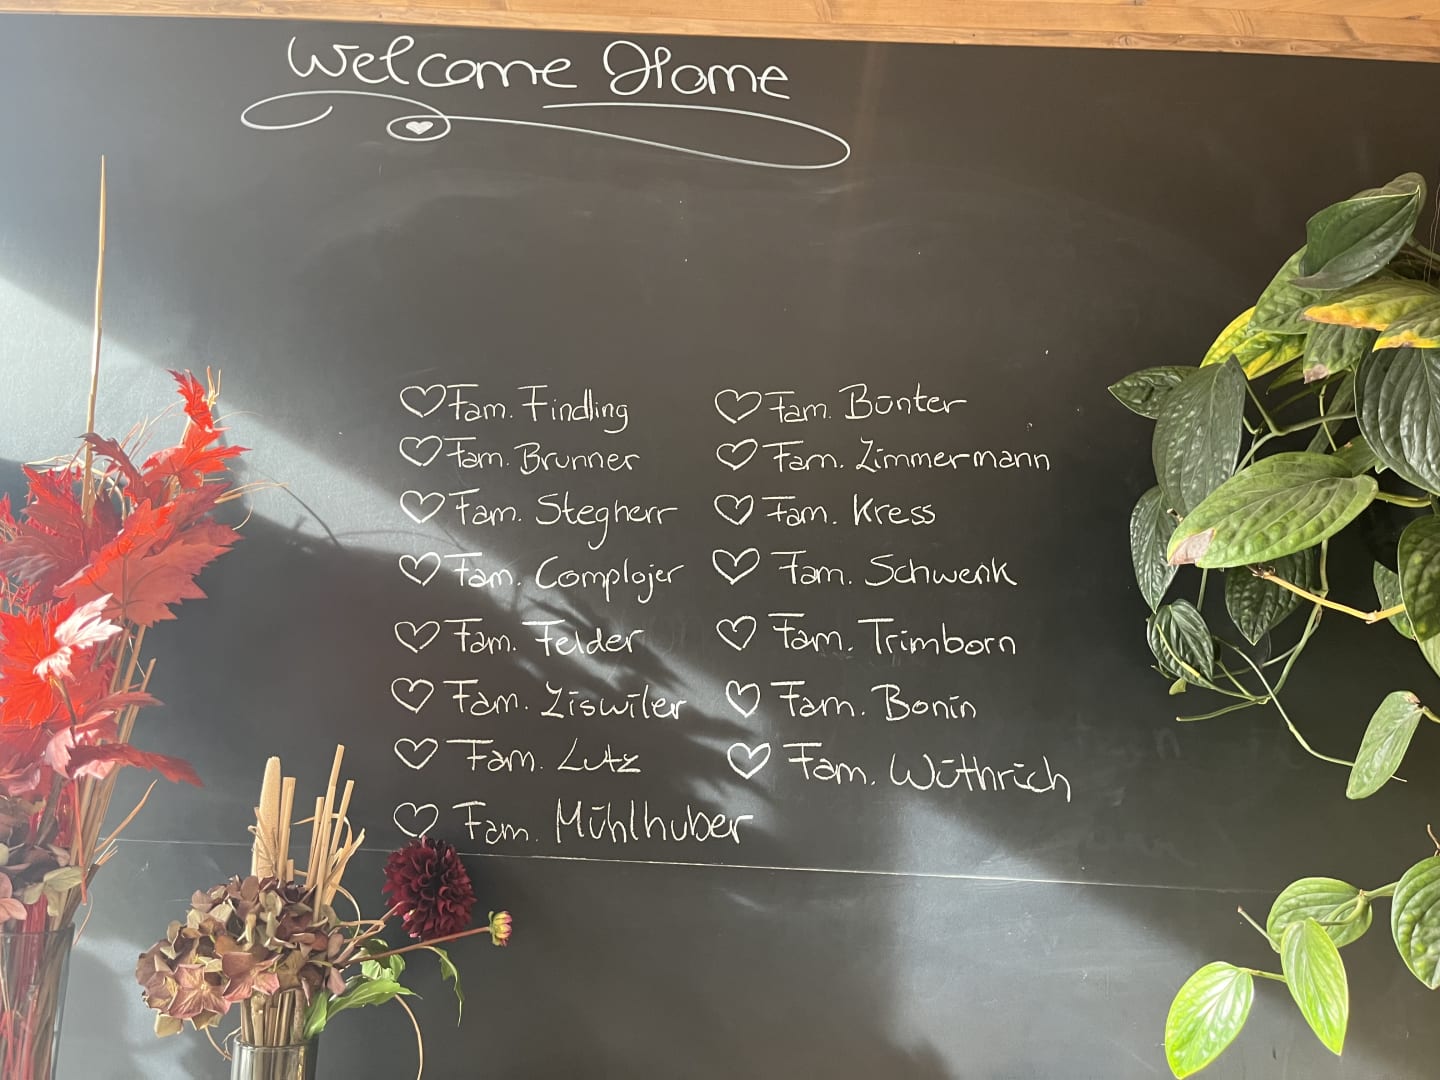 Welcome Home
♡ Fam. Findling
♡ Fam. Brunner
♡ Fam. Stegherr
♡ Fam. Complojer
♡ Fam. Felder
♡ Fam. Ziswiler
♡ Fam. Lutz
♡ Fam. Mühlhuber
♡ Fam. Bünter
♡ Fam. Zimmermann
♡ Fam. Kress
♡ Fam. Schwenk
♡ Fam. Trimborn
♡ Fam. Bonin
♡ Fam. Wüthrich